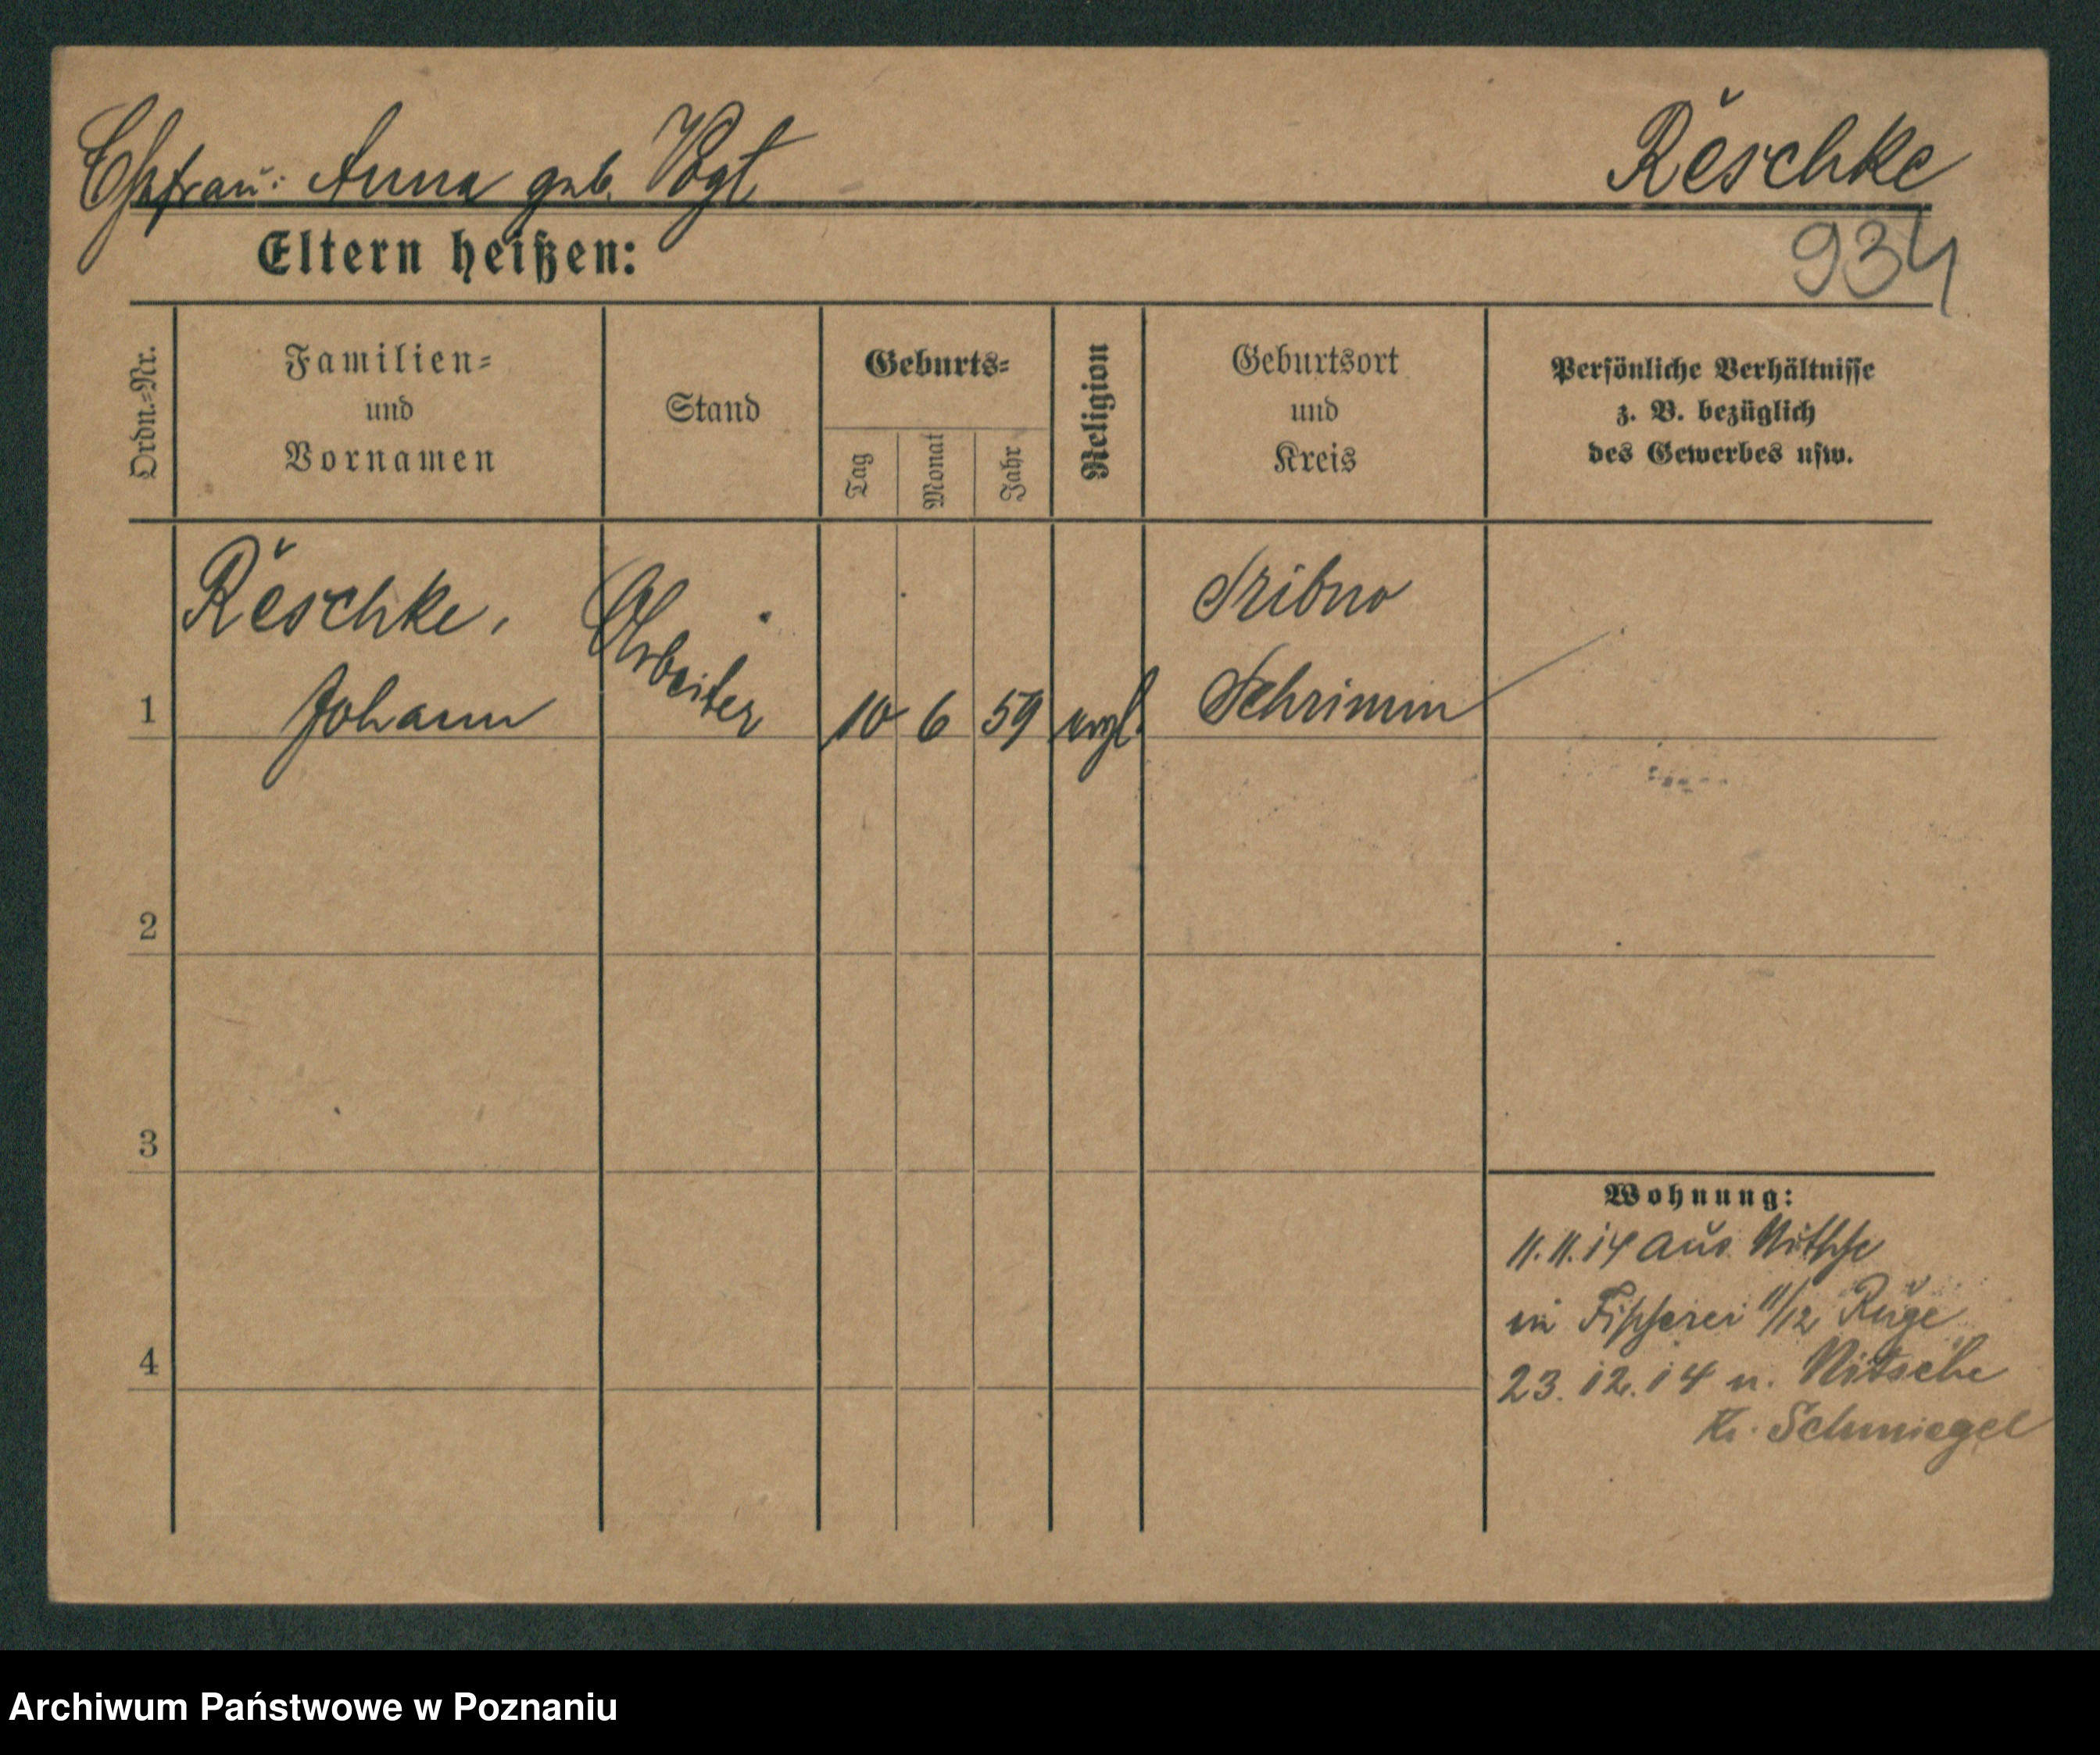 Ehefrau: Anna geb. Vogt
Reschke
934
Eltern heißen:
Ordn.-Nr.
Familien-
und
Vornamen
Stand
Geburts-
Tag
Monat
Jahr
Religion
Geburtsort
und
Kreis
Persönliche Verhältnisse
z. B. bezüglich
des Gewerbes usw.
1
Reschke,
Johann
Arbeiter
10
6
59
evgl.
Schrimm
2
3
4
Wohnung:
11.11.14 aus Nitsche
in Fischerei 11/12 Ruge
23.12.14 n. Nitsche
Kr. Schmiegel
Archiwum Państwowe w Poznaniu